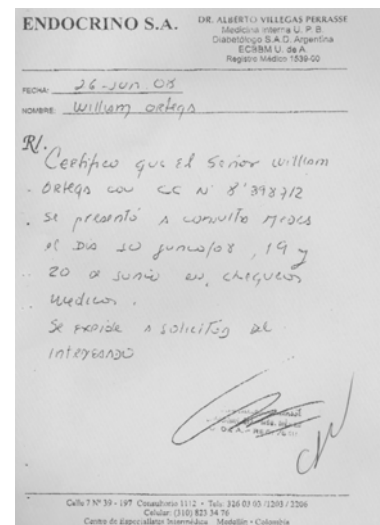 ENDOCRINO S.A.
DR. ALBERTO VILLEGAS PERRASSE
Medicina Interna U. P. B.
Diabetólogo S.A.D. Argentina
ECSBM U. de A.
Registro Médico 1539-00
FECHA: 26-JUN 08
NOMBRE: William ortega
R/.
Certifico que El Señor william
ortega con CC Nº 8'398712
se presentó a consulta
el Dia 10 junio/08, 19 y
20 de junio en, chequeos
medicos.
Se expide a solicitud del
interesado
Calle 7 Nº 39 - 197 Consultorio 1112 • Tels: 326 03 03 /1203 / 2206
Celular: (310) 823 34 76
Centro de Especialistas Intermédica Medellín - Colombia